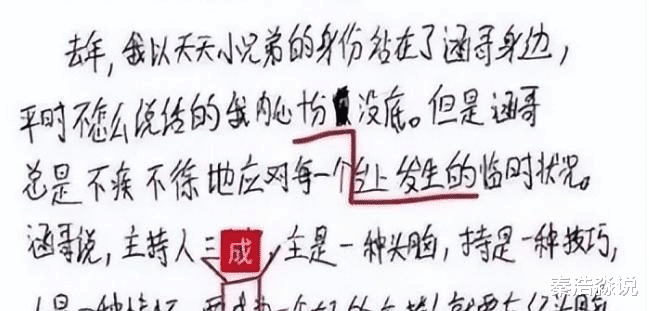 去年,我以天天小兄弟的身份站在了涵哥身边,
平时不怎么说话的我内心十份没底。但是涵哥
总是不疾不徐地应对每一个台上发生的临时状况。
涵哥说,主持人三成,主是一种头脑,持是一种技巧,
人是一种
奉浩淼说